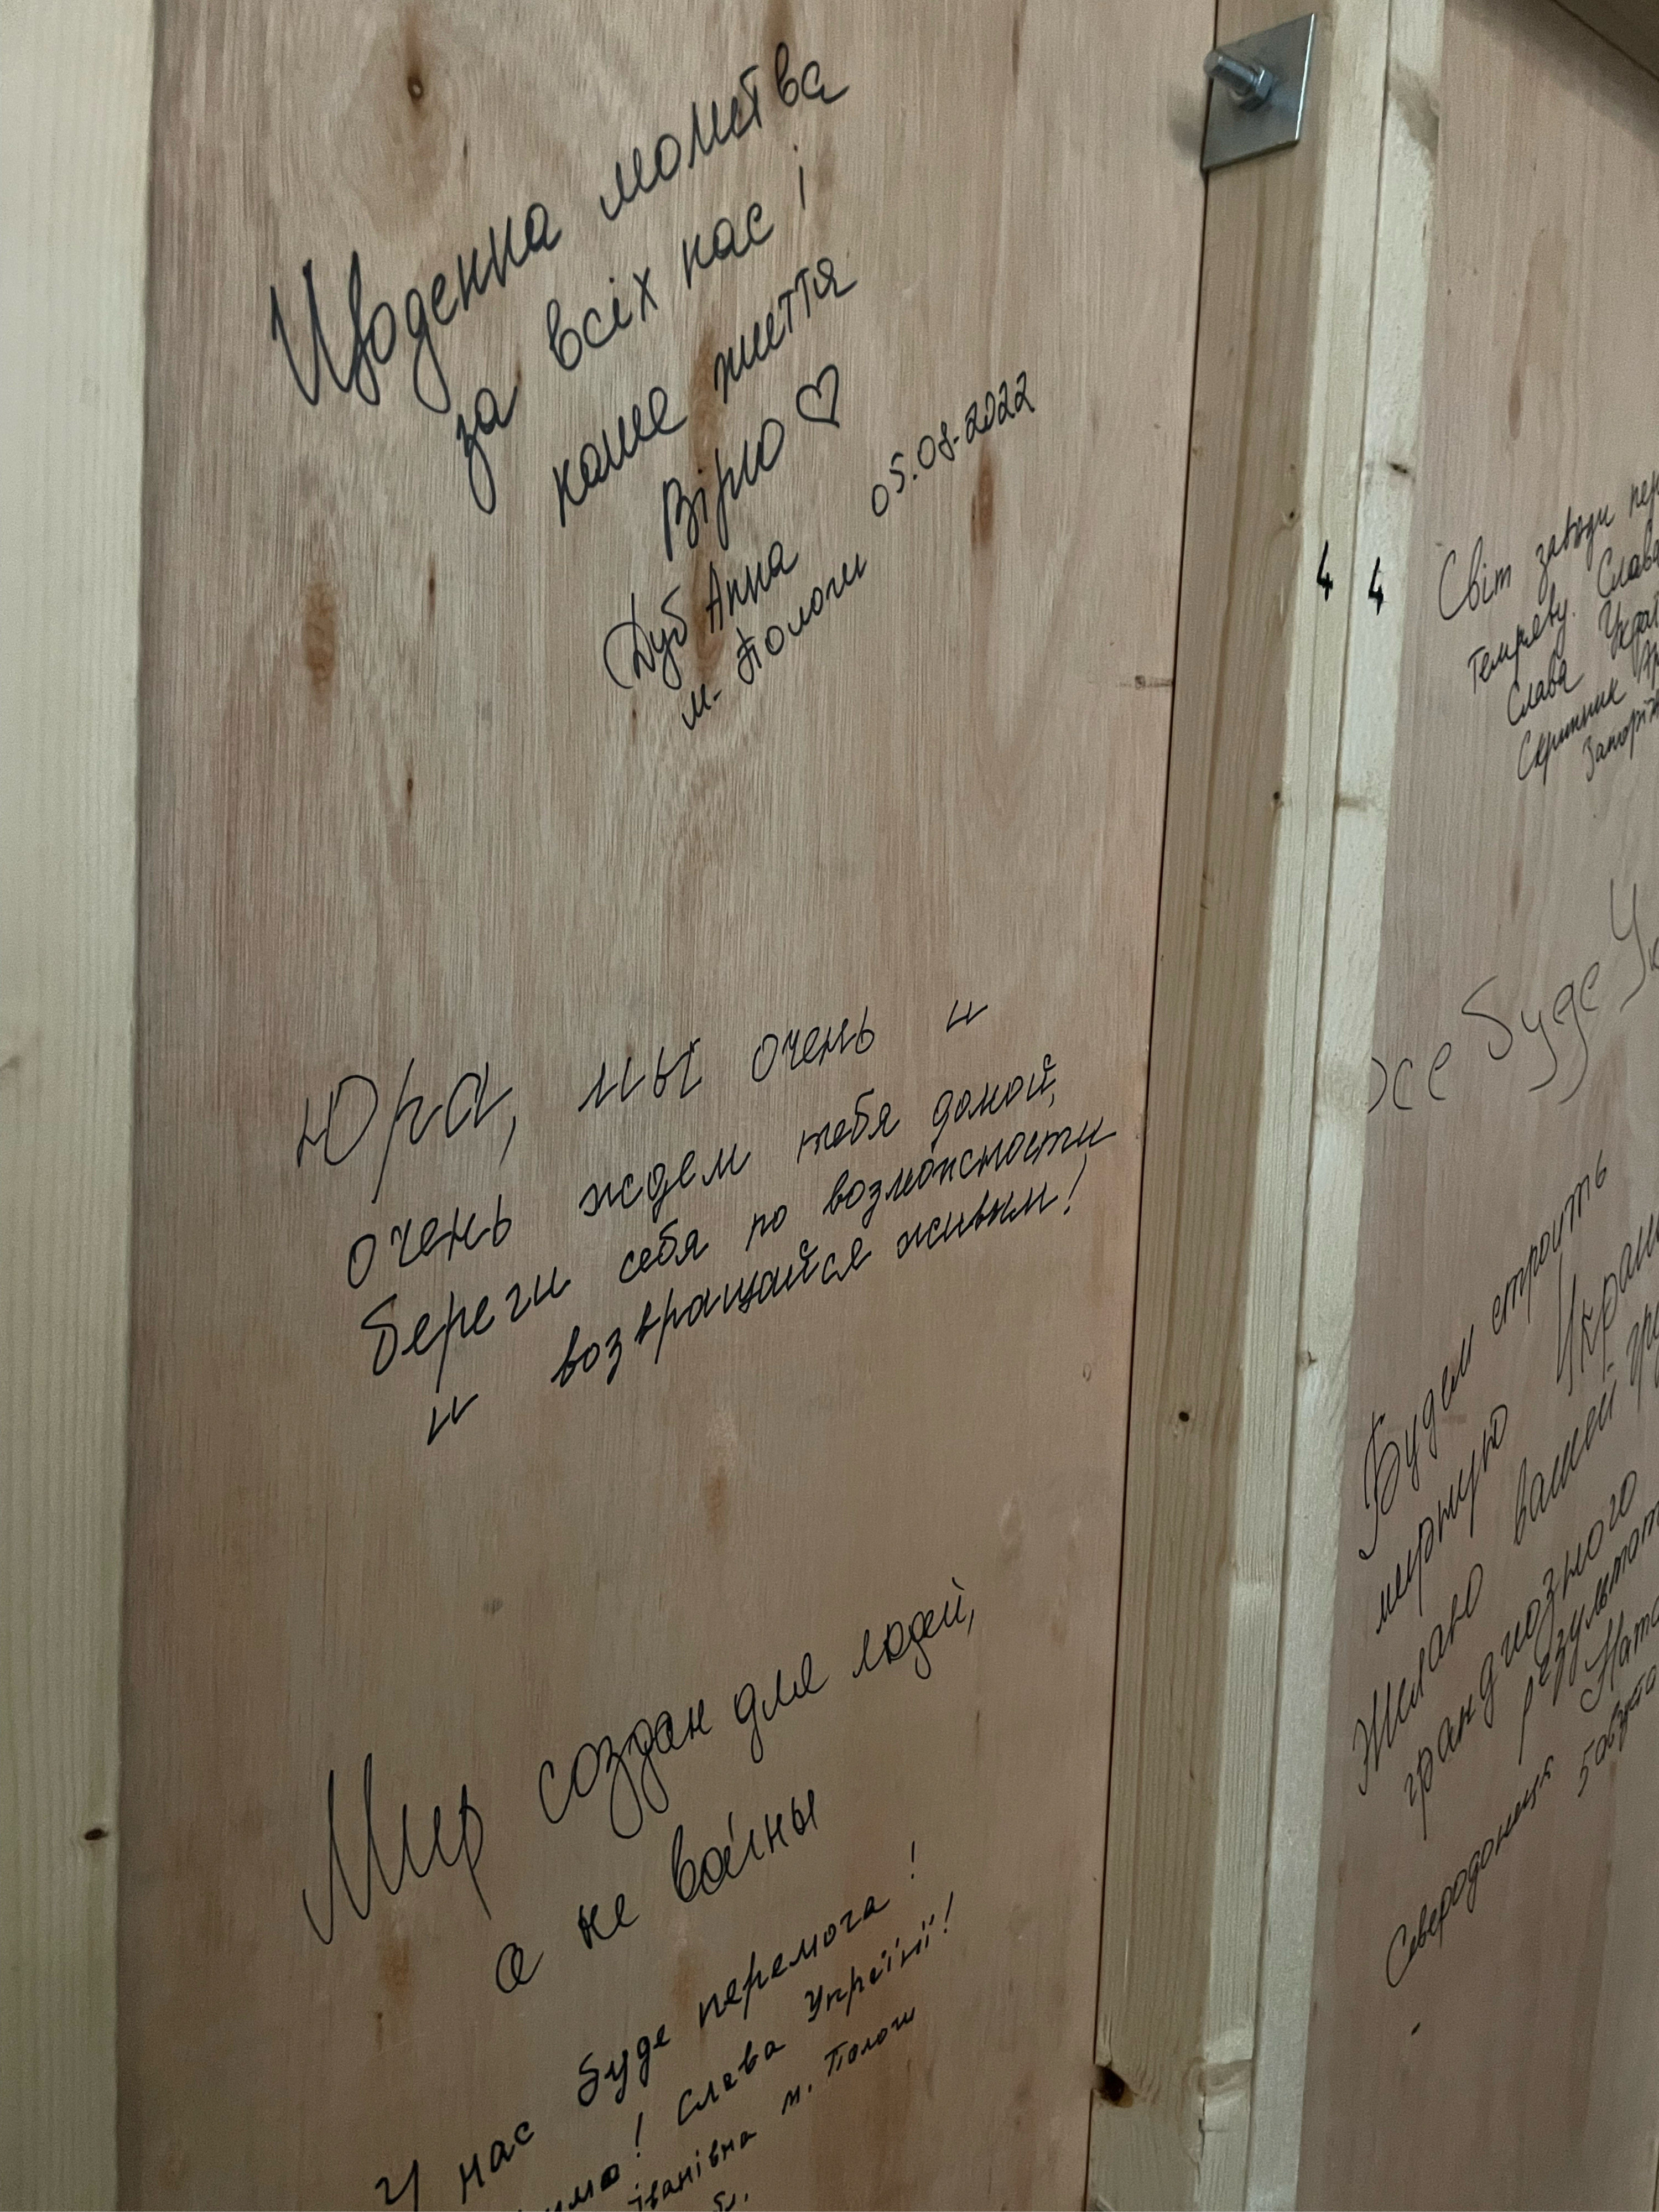 Щоденна молитва
за всіх нас і
наше життя
Вірю ♡
Дуб Анна 05.08.2022
м. Пологи
Юра, мы очень и
очень ждем тебя домой,
береги себя по возможности
и возвращайся живым!
Мир создан для людей,
а не войны
У нас буде перемога!
Слава Україні!
іванівна м. Пологи
4 4
Світ завжди
темряву. Слава
Слава
Скрипник
буде
Будем строить
мирную
Желаю вашей
грандиозного
Северодонецк 5